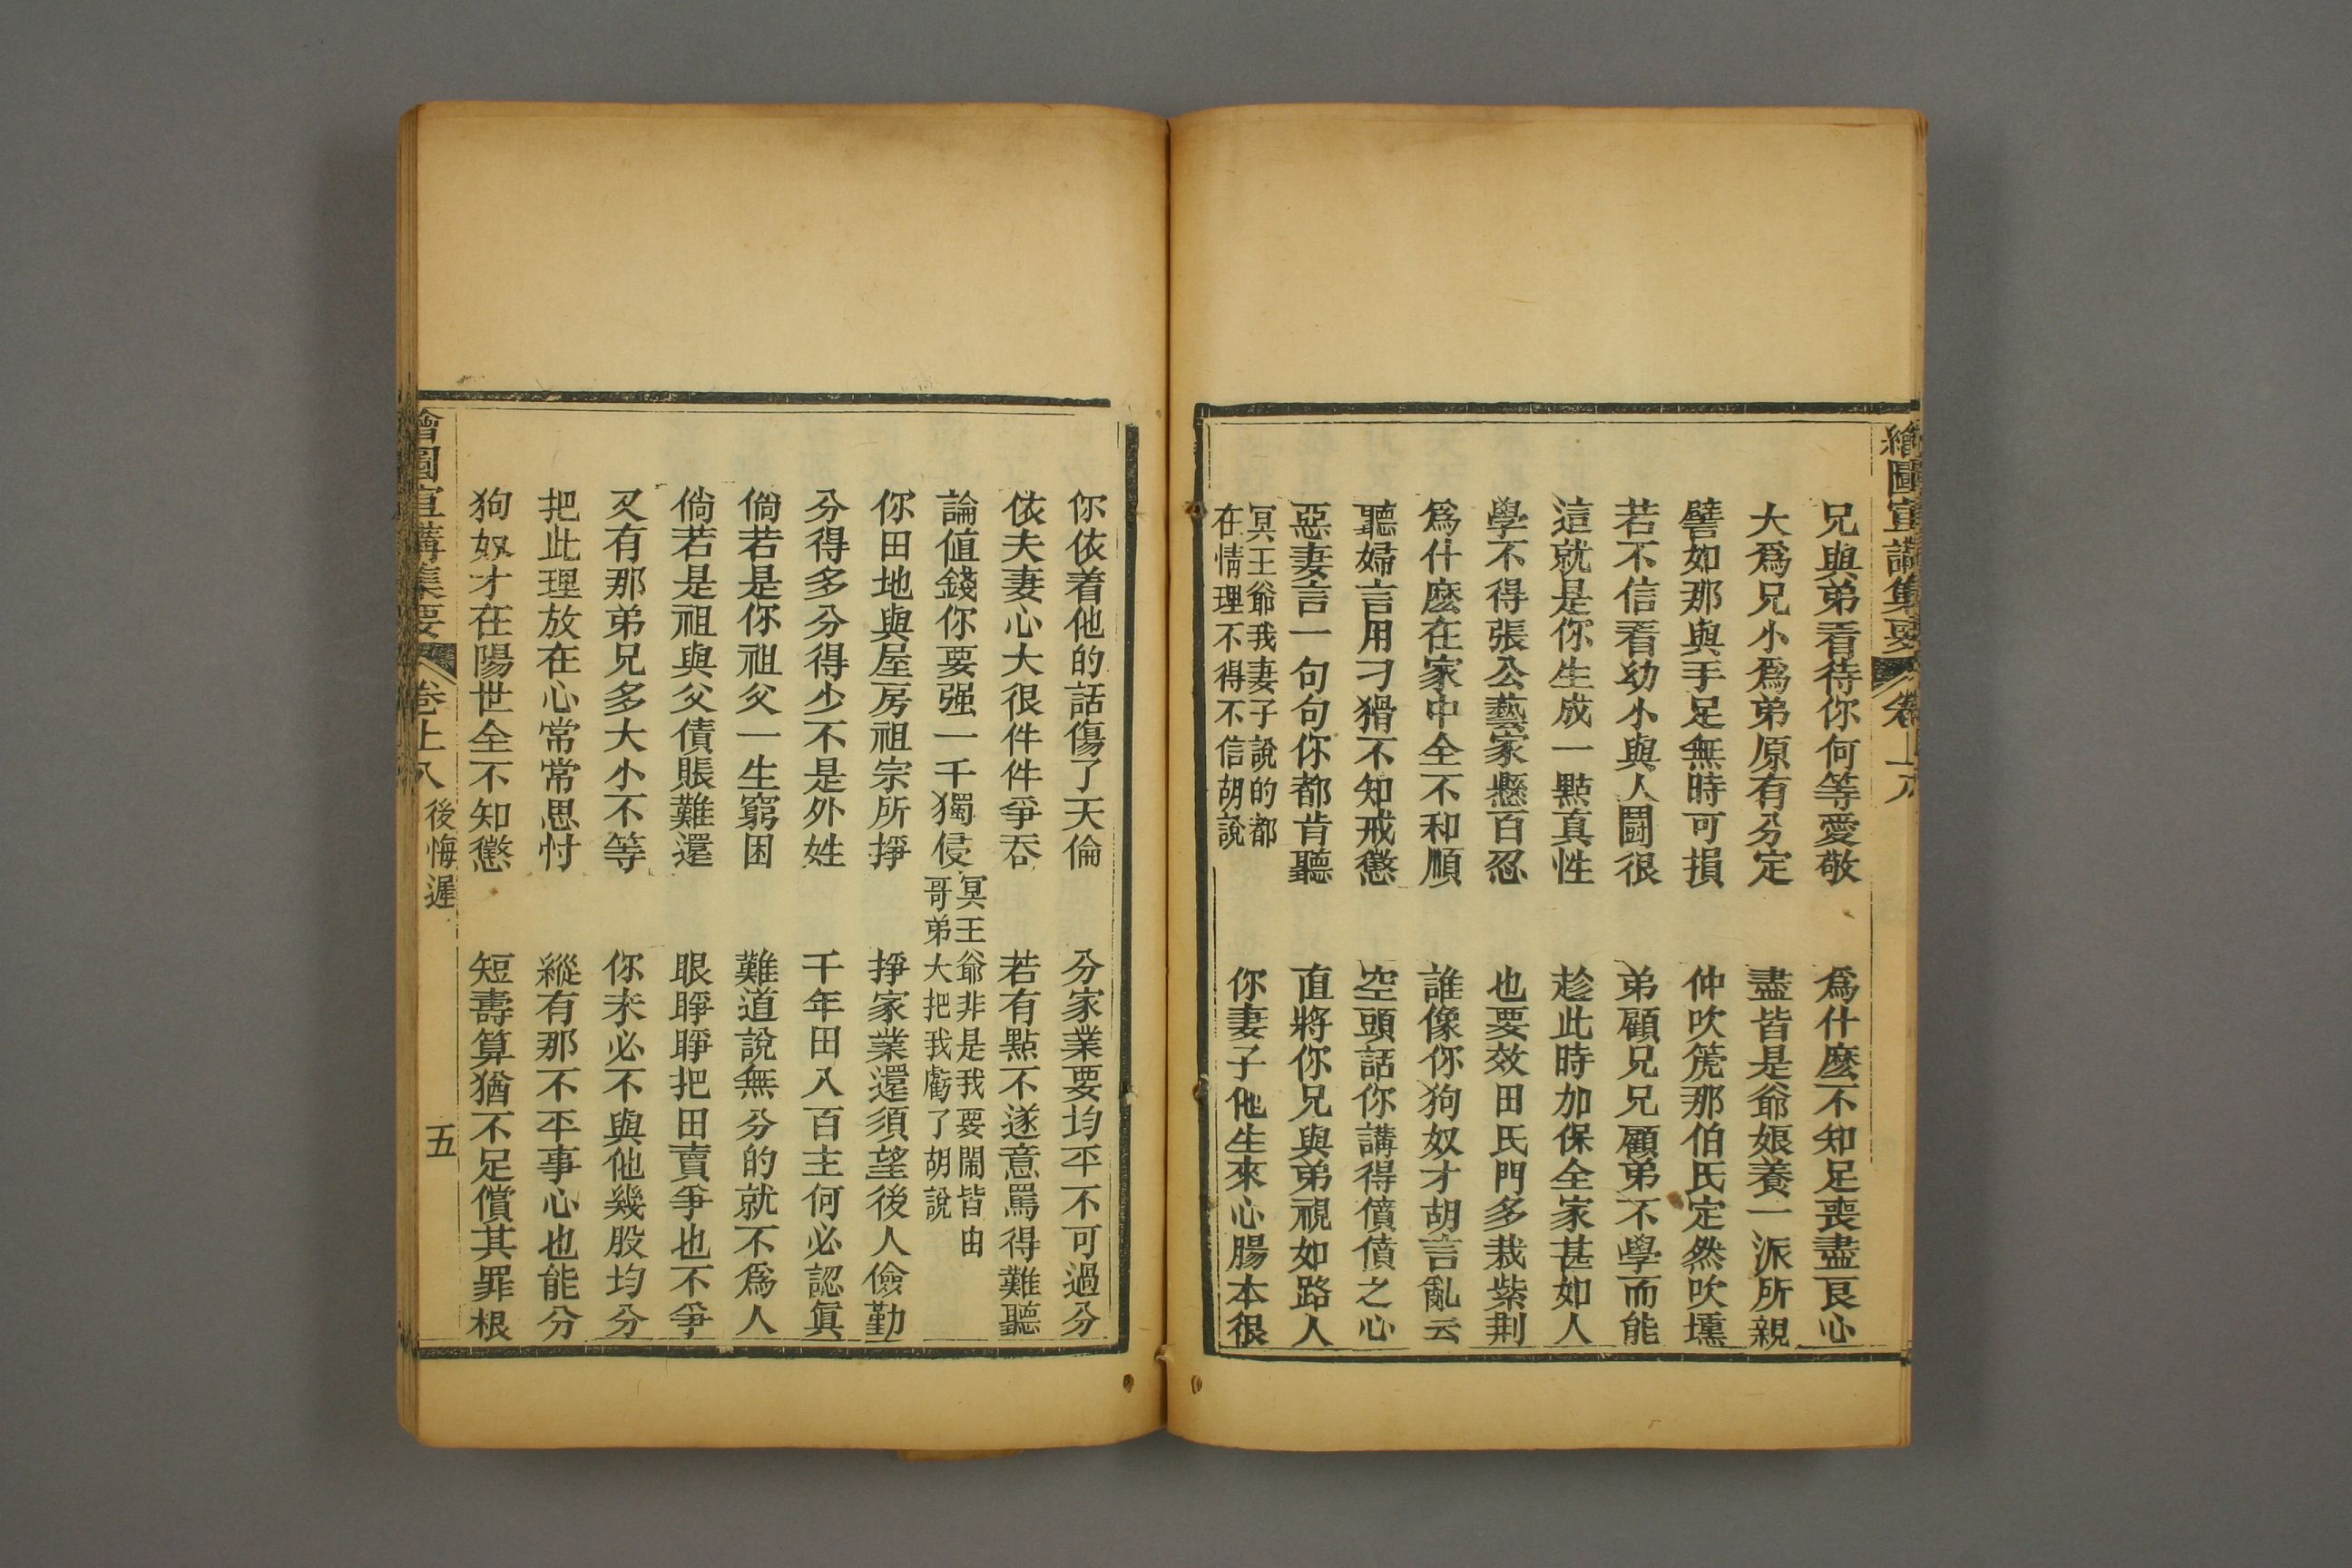 繪圖宣講集要 卷上八
兄與弟看待你何等愛敬 爲什麽不知足喪盡良心
大爲兄小爲弟原有分定 盡皆是爺娘養一派所親
譬如那與手足無時可損 仲吹箎那伯氏定然吹壎
若不信看幼小與人鬬很 弟顧兄兄顧弟不學而能
這就是你生成一點真性 趁此時加保全家甚如人
學不得張公藝家懸百忍 也要效田氏門多栽紫荆
爲什麽在家中全不和順 誰像你狗奴才胡言亂云
聽婦言用刁猾不知戒懲 空頭話你講得僨僨之心
惡妻言一句句你都肯聽 直將你兄與弟視如路人
冥王爺我妻子說的都
在情理不得不信胡說
你妻子他生來心腸本很
你依着他的話傷了天倫 分家業要均平不可過分
依夫妻心大很件件爭吞 若有點不遂意罵得難聽
論值錢你要强一千獨侵
冥王爺非是我要鬧皆由
哥弟大把我虧了胡說
你田地與屋房祖宗所掙 掙家業還須望後人儉勤
分得多分得少不是外姓 千年田八百主何必認眞
倘若是你祖父一生窮困 難道說無分的就不爲人
倘若是祖與父債賬難還 眼睜睜把田賣爭也不爭
又有那弟兄多大小不等 你未必不與他幾股均分
把此理放在心常常思忖 縱有那不平事心也能分
狗奴才在陽世全不知懲 短壽算猶不足償其罪根
繪圖宣講集要 卷上八 後悔遲 五